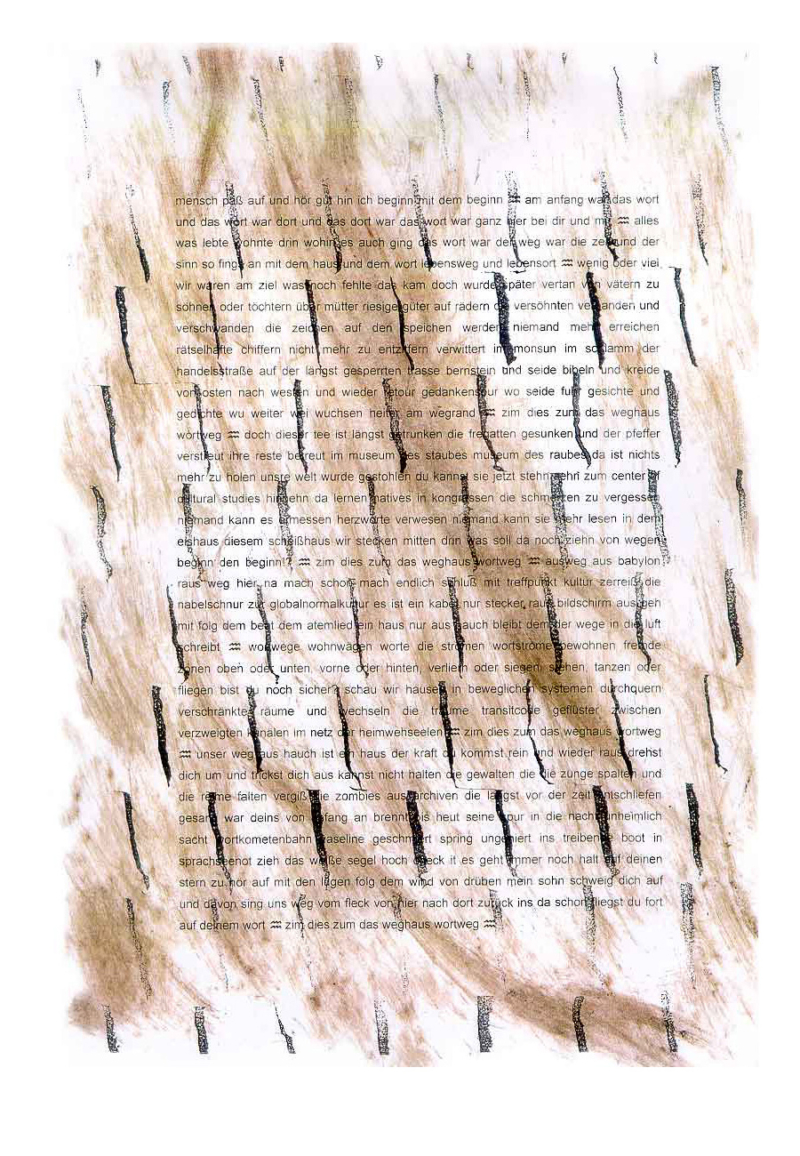 mensch paß auf und hör gut hin ich beginn mit dem beginn ♒ am anfang war das wort
und das wort war dort und das dort war das wort war ganz hier bei dir und mir ♒ alles
was lebte wohnte drin wohin es auch ging das wort war der weg war die zeit und der
sinn so fings an mit dem haus und dem wort lebensweg und lebensort ♒ wenig oder viel
wir waren am ziel was noch fehlte das kam doch wurde später vertan von vätern zu
söhnen oder töchtern über mütter riesige güter auf rädern die versöhnten verbanden und
verschwanden die zeichen auf den speichen werden niemand mehr erreichen
rätselhafte chiffern nicht mehr zu entziffern verwittert im monsun im schlamm der
handelsstraße auf der längst gesperrten trasse bernstein und seide bibeln und kreide
von osten nach westen und wieder retour gedankenspur wo seide fuhr gesichte und
gedichte wu weiter wei wuchsen heiter am wegrand ♒ zim dies zum das weghaus
wortweg ♒ doch dieser tee ist längst getrunken die fregatten gesunken und der pfeffer
verstreut ihre reste betreut im museum des staubes museum des raubes da ist nichts
mehr zu holen unsre welt wurde gestohlen du kannst sie jetzt stehn sehn zum center of
cultural studies hingehn da lernen natives in kongressen die schmerzen zu vergessen
niemand kann es ermessen herzworte verwesen niemand kann sie mehr lesen in dem
eishaus diesem scheißhaus wir stecken mitten drin was soll da noch ziehn von wegen
beginn den beginn!? ♒ zim dies zum das weghaus wortweg ♒ ausweg aus babylon
raus weg hier na mach schon mach endlich schluß mit treffpunkt kultur zerreiß die
nabelschnur zur globalnormalkultur es ist ein kabel nur stecker raus bildschirm aus geh
mit folg dem beat dem atemlied ein haus nur aus hauch bleibt dem der wege in die luft
schreibt ♒ wortwege wohnwägen worte die strömen wortströme bewohnen fremde
zonen oben oder unten, vorne oder hinten, verliern oder siegen, stehen, tanzen oder
fliegen bist du noch sicher? schau wir hausen in beweglichen systemen durchquern
verschränkte räume und wechseln die träume transitcode geflüster zwischen
verzweigten kanälen im netz der heimwehseelen ♒ zim dies zum das weghaus wortweg
♒ unser weg aus hauch ist ein haus der kraft du kommst rein und wieder raus drehst
dich um und trickst dich aus kannst nicht halten die gewalten die die zunge spalten und
die reime falten vergiß die zombies aus archiven die längst vor der zeit entschliefen
gesang war deins von anfang an brennt bis heut seine spur in die nacht unheimlich
sacht wortkometenbahn vaseline geschmiert spring ungeniert ins treibende boot in
sprachseenot zieh das weiße segel hoch check it es geht immer noch halt auf deinen
stern zu hör auf mit den lügen folg dem wind von drüben mein sohn schweig dich auf
und davon sing uns weg vom fleck von hier nach dort zurück ins da schon fliegst du fort
auf deinem wort ♒ zim dies zum das weghaus wortweg ♒